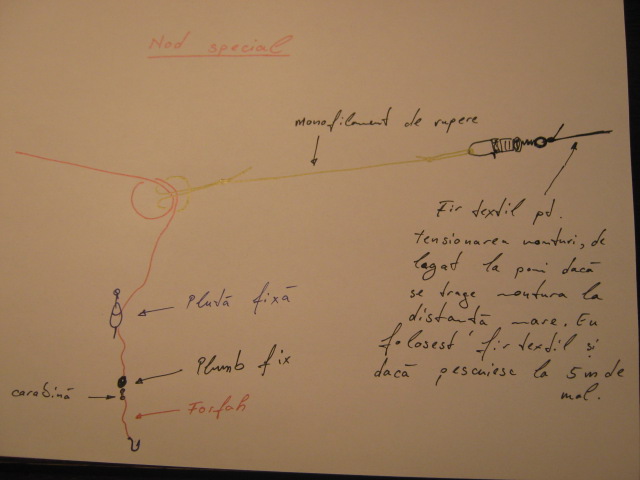 Nod special
monofilament de rupere
Fir textil pt.
tensionarea monturi, de
legat la pomi dacă
se trage montura la
distanță mare. Eu
folosesc fir textil și
dacă pescuiesc la 5 m de
mal.
Plută fixă
Plumb fix
carabină
Forfah